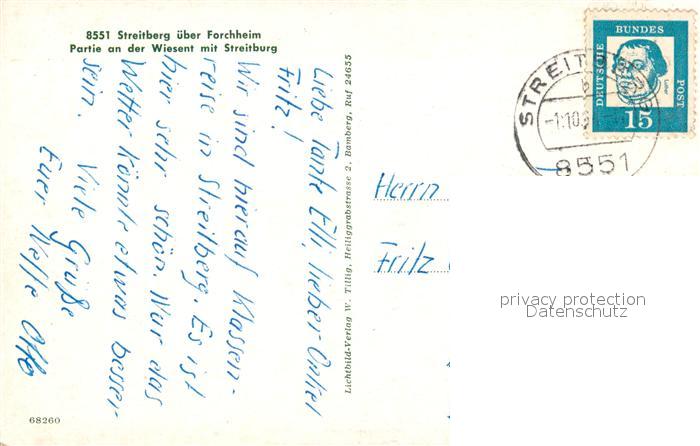 8551 Streitberg über Forchheim
Partie an der Wiesent mit Streitburg
Liebe Tante Elli, lieber Onkel
Fritz!
Wir sind hierauf Klassen-
reise in Streitberg. Es ist
hier sehr schön. Nur das
Wetter könnte etwas besser
sein.
Viele Grüße
Euer Neffe Otto
Lichtbild-Verlag W. Tillig, Heiliggrabstrasse 2, Bamberg, Ruf 24655
68260
DEUTSCHE BUNDES POST
Luther
15
STREITBERG
-1.10.
8551
Herrn
Fritz
privacy protection
Datenschutz